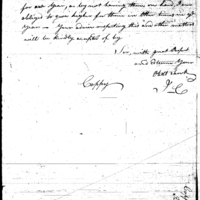 for one Year, as by not having them on hand, I am
obliged to give higher for them in other times in ye
Year — Your advice respecting this and other matters
will be kindly accepted of by
Sir, with great Respect
and Esteem Your
Obdt Servt
Coppy